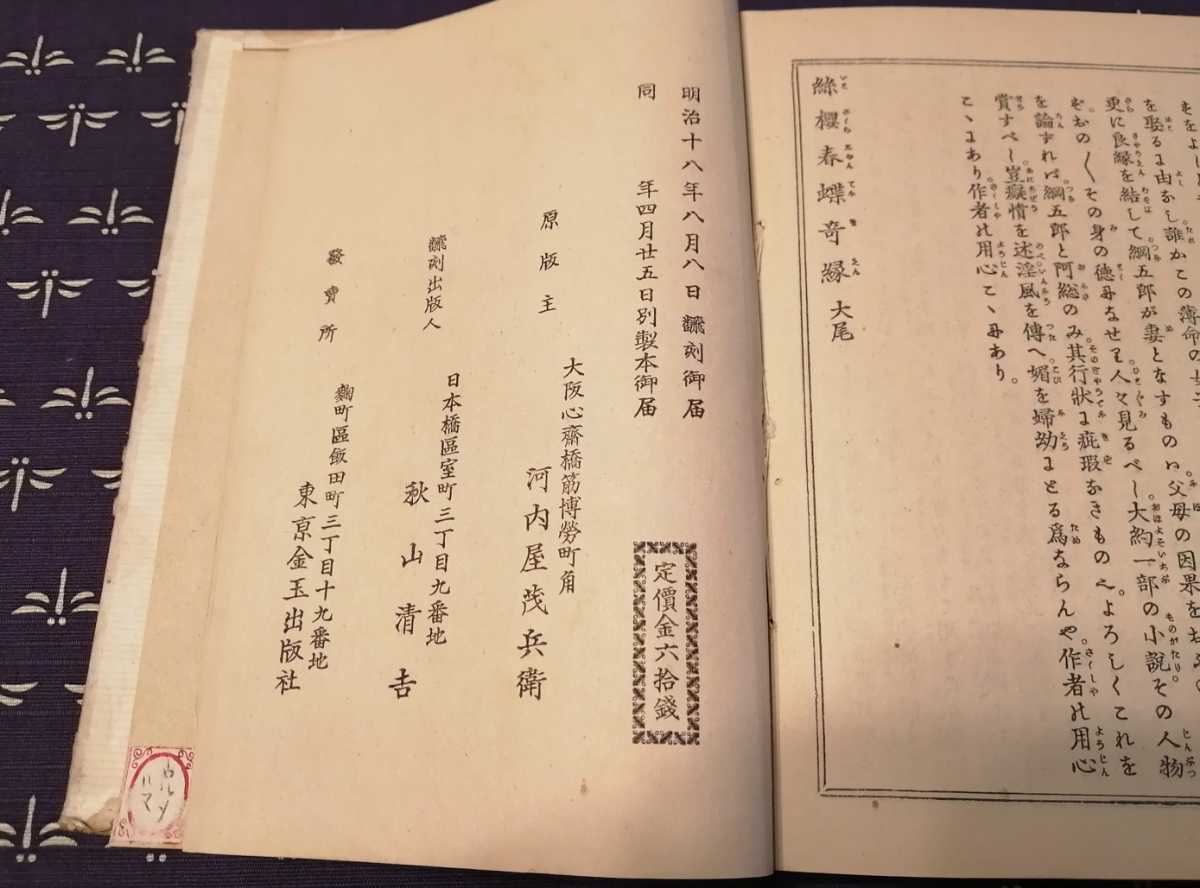 を娶るに由なし。誰かこの薄命の
更に良縁を結して。綱五郎が妻となすものハ。父母の因果を
その身の徳になせり。人々見るべし。大約一部の小説。その人物
を論ずれバ。綱五郎と阿総のみ。其行状に疵瑕なきもの也。よろしくこれを
賞すべし。豈癡情を述。淫風を傳へ。媚を婦幼にとる爲ならんや。作者の用心
こゝにあり。作者の用心こゝにあり。
絲櫻春蝶奇縁 大尾
明治十八年八月八日飜刻御届
同 年四月廿五日別製本御届
定價金六拾錢
原版主
大阪心齋橋筋博勞町角
河内屋茂兵衛
飜刻出版人
日本橋區室町三丁目九番地
秋山清吉
發賣所
麴町區飯田町三丁目十九番地
東京金玉出版社